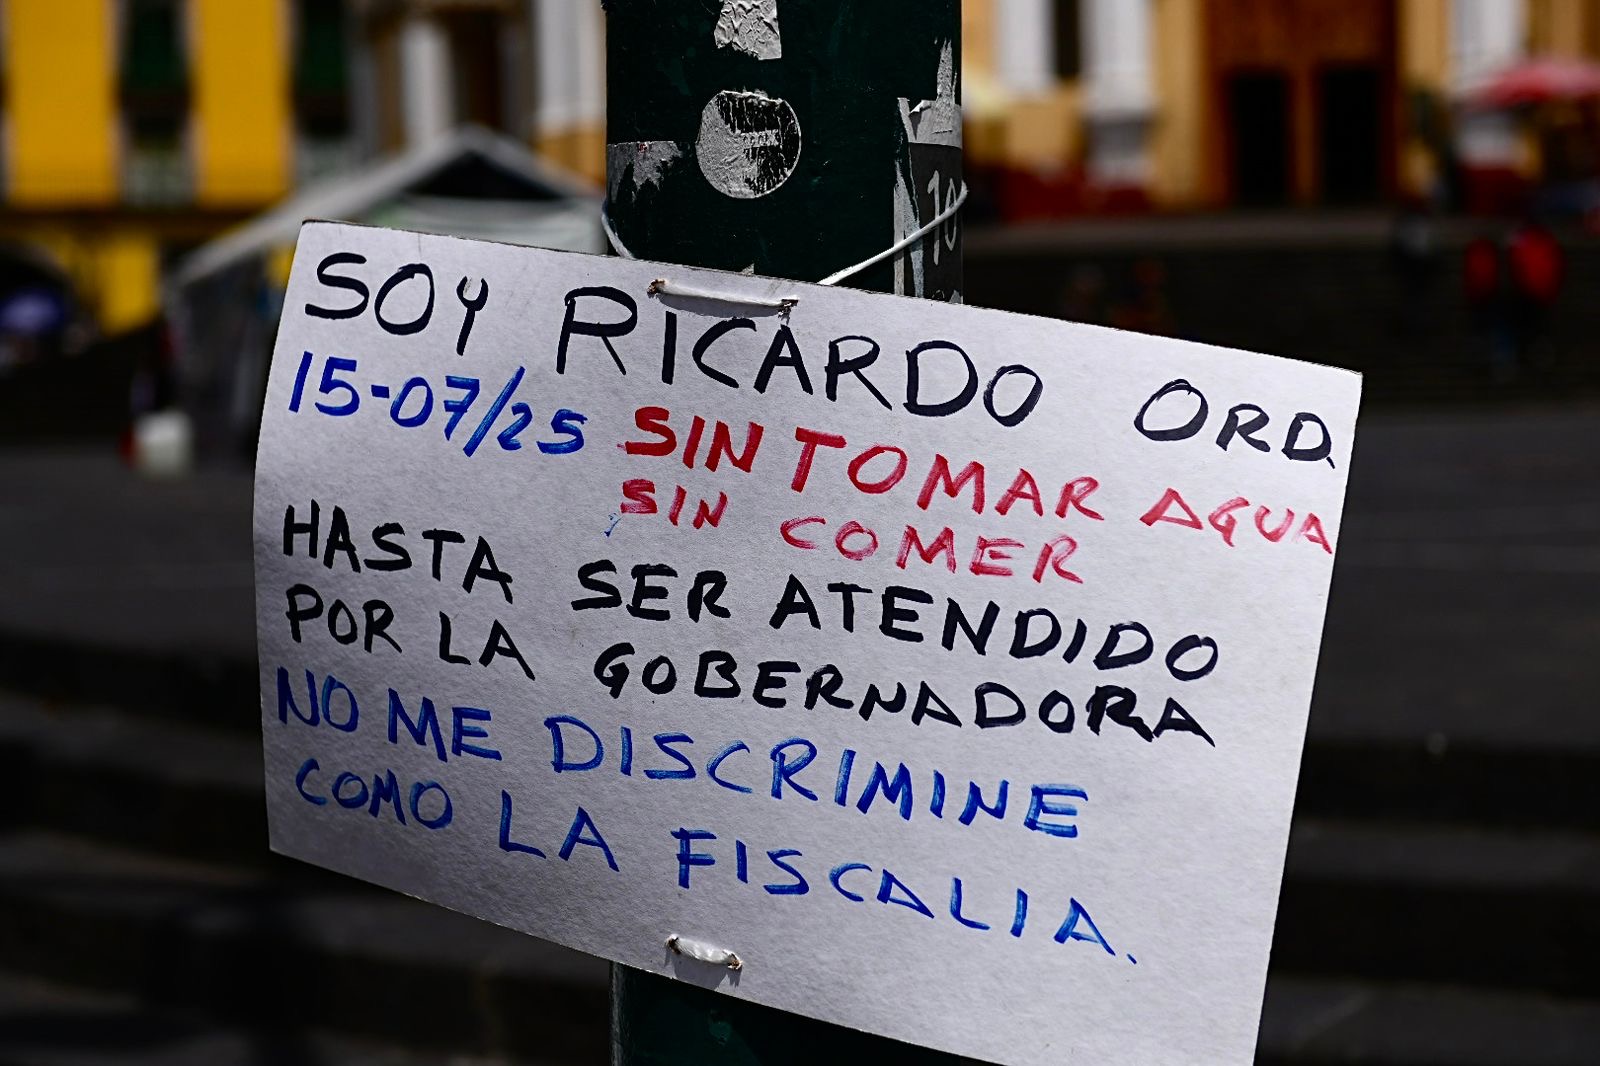 SOY RICARDO ORD.
15-07/25 SIN TOMAR AGUA
SIN COMER
HASTA SER ATENDIDO
POR LA GOBERNADORA
NO ME DISCRIMINE
COMO LA FISCALIA.
10